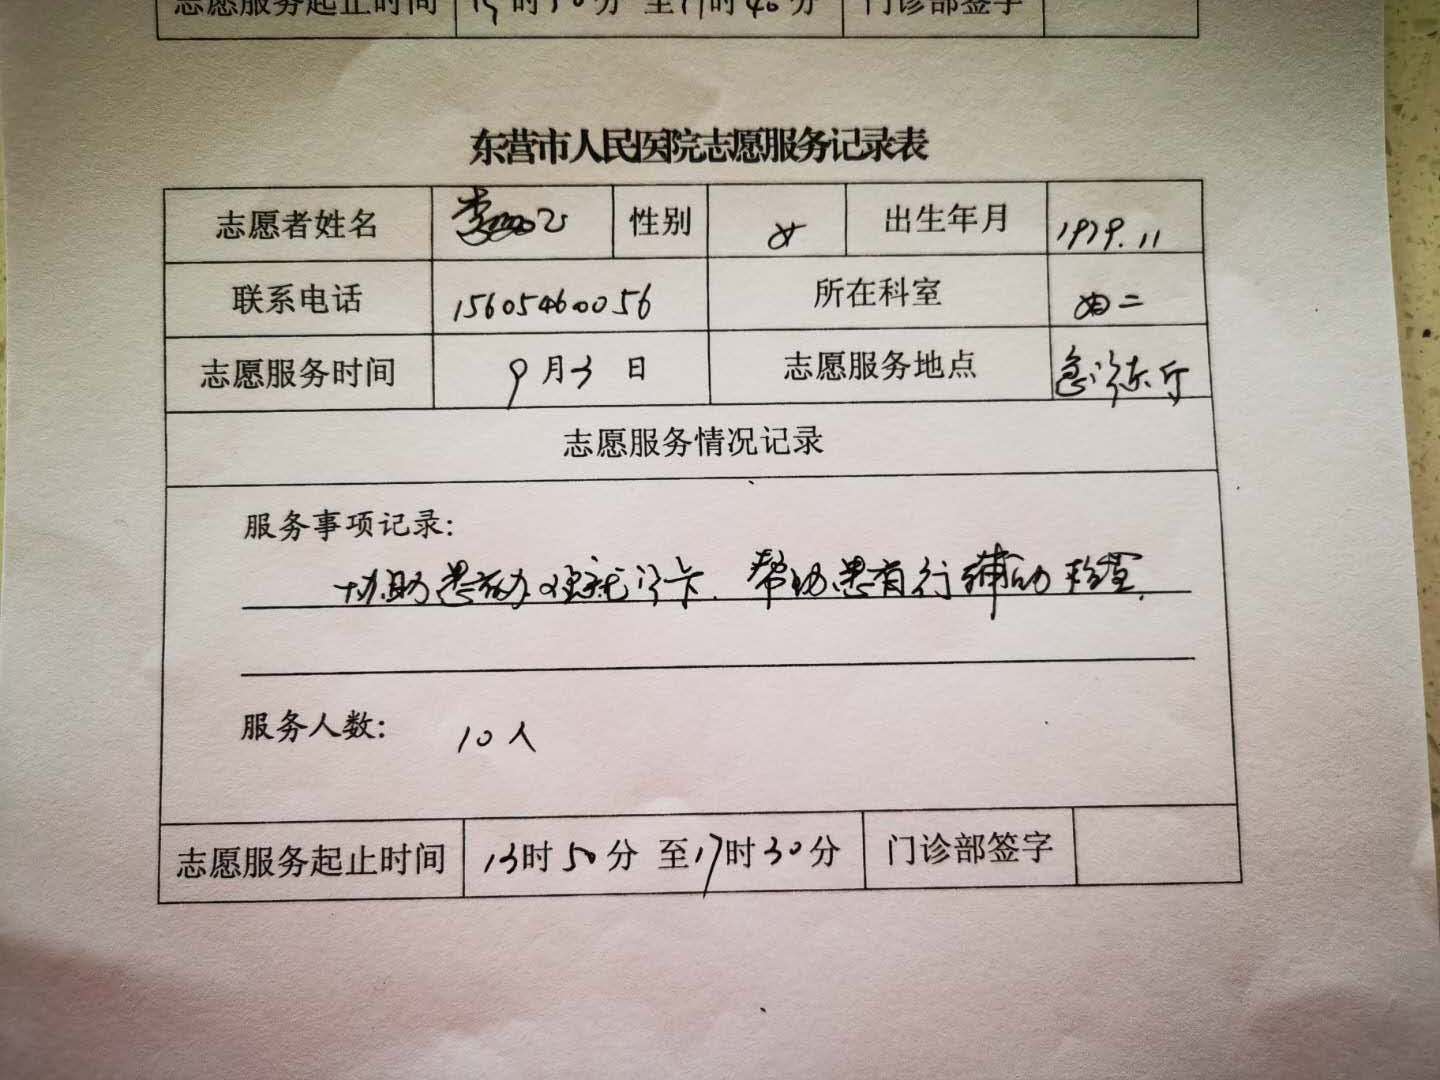 志愿服务起止时间 15时50分 至17时40分 门诊部签字
东营市人民医院志愿服务记录表
志愿者姓名 李 性别 女 出生年月 1979.11
联系电话 15605460056 所在科室 内二
志愿服务时间 9月3日 志愿服务地点 急诊东厅
志愿服务情况记录
服务事项记录:
协助患者办理就诊卡. 帮助患者行辅助检查.
服务人数: 10人
志愿服务起止时间 13时50分 至17时30分 门诊部签字